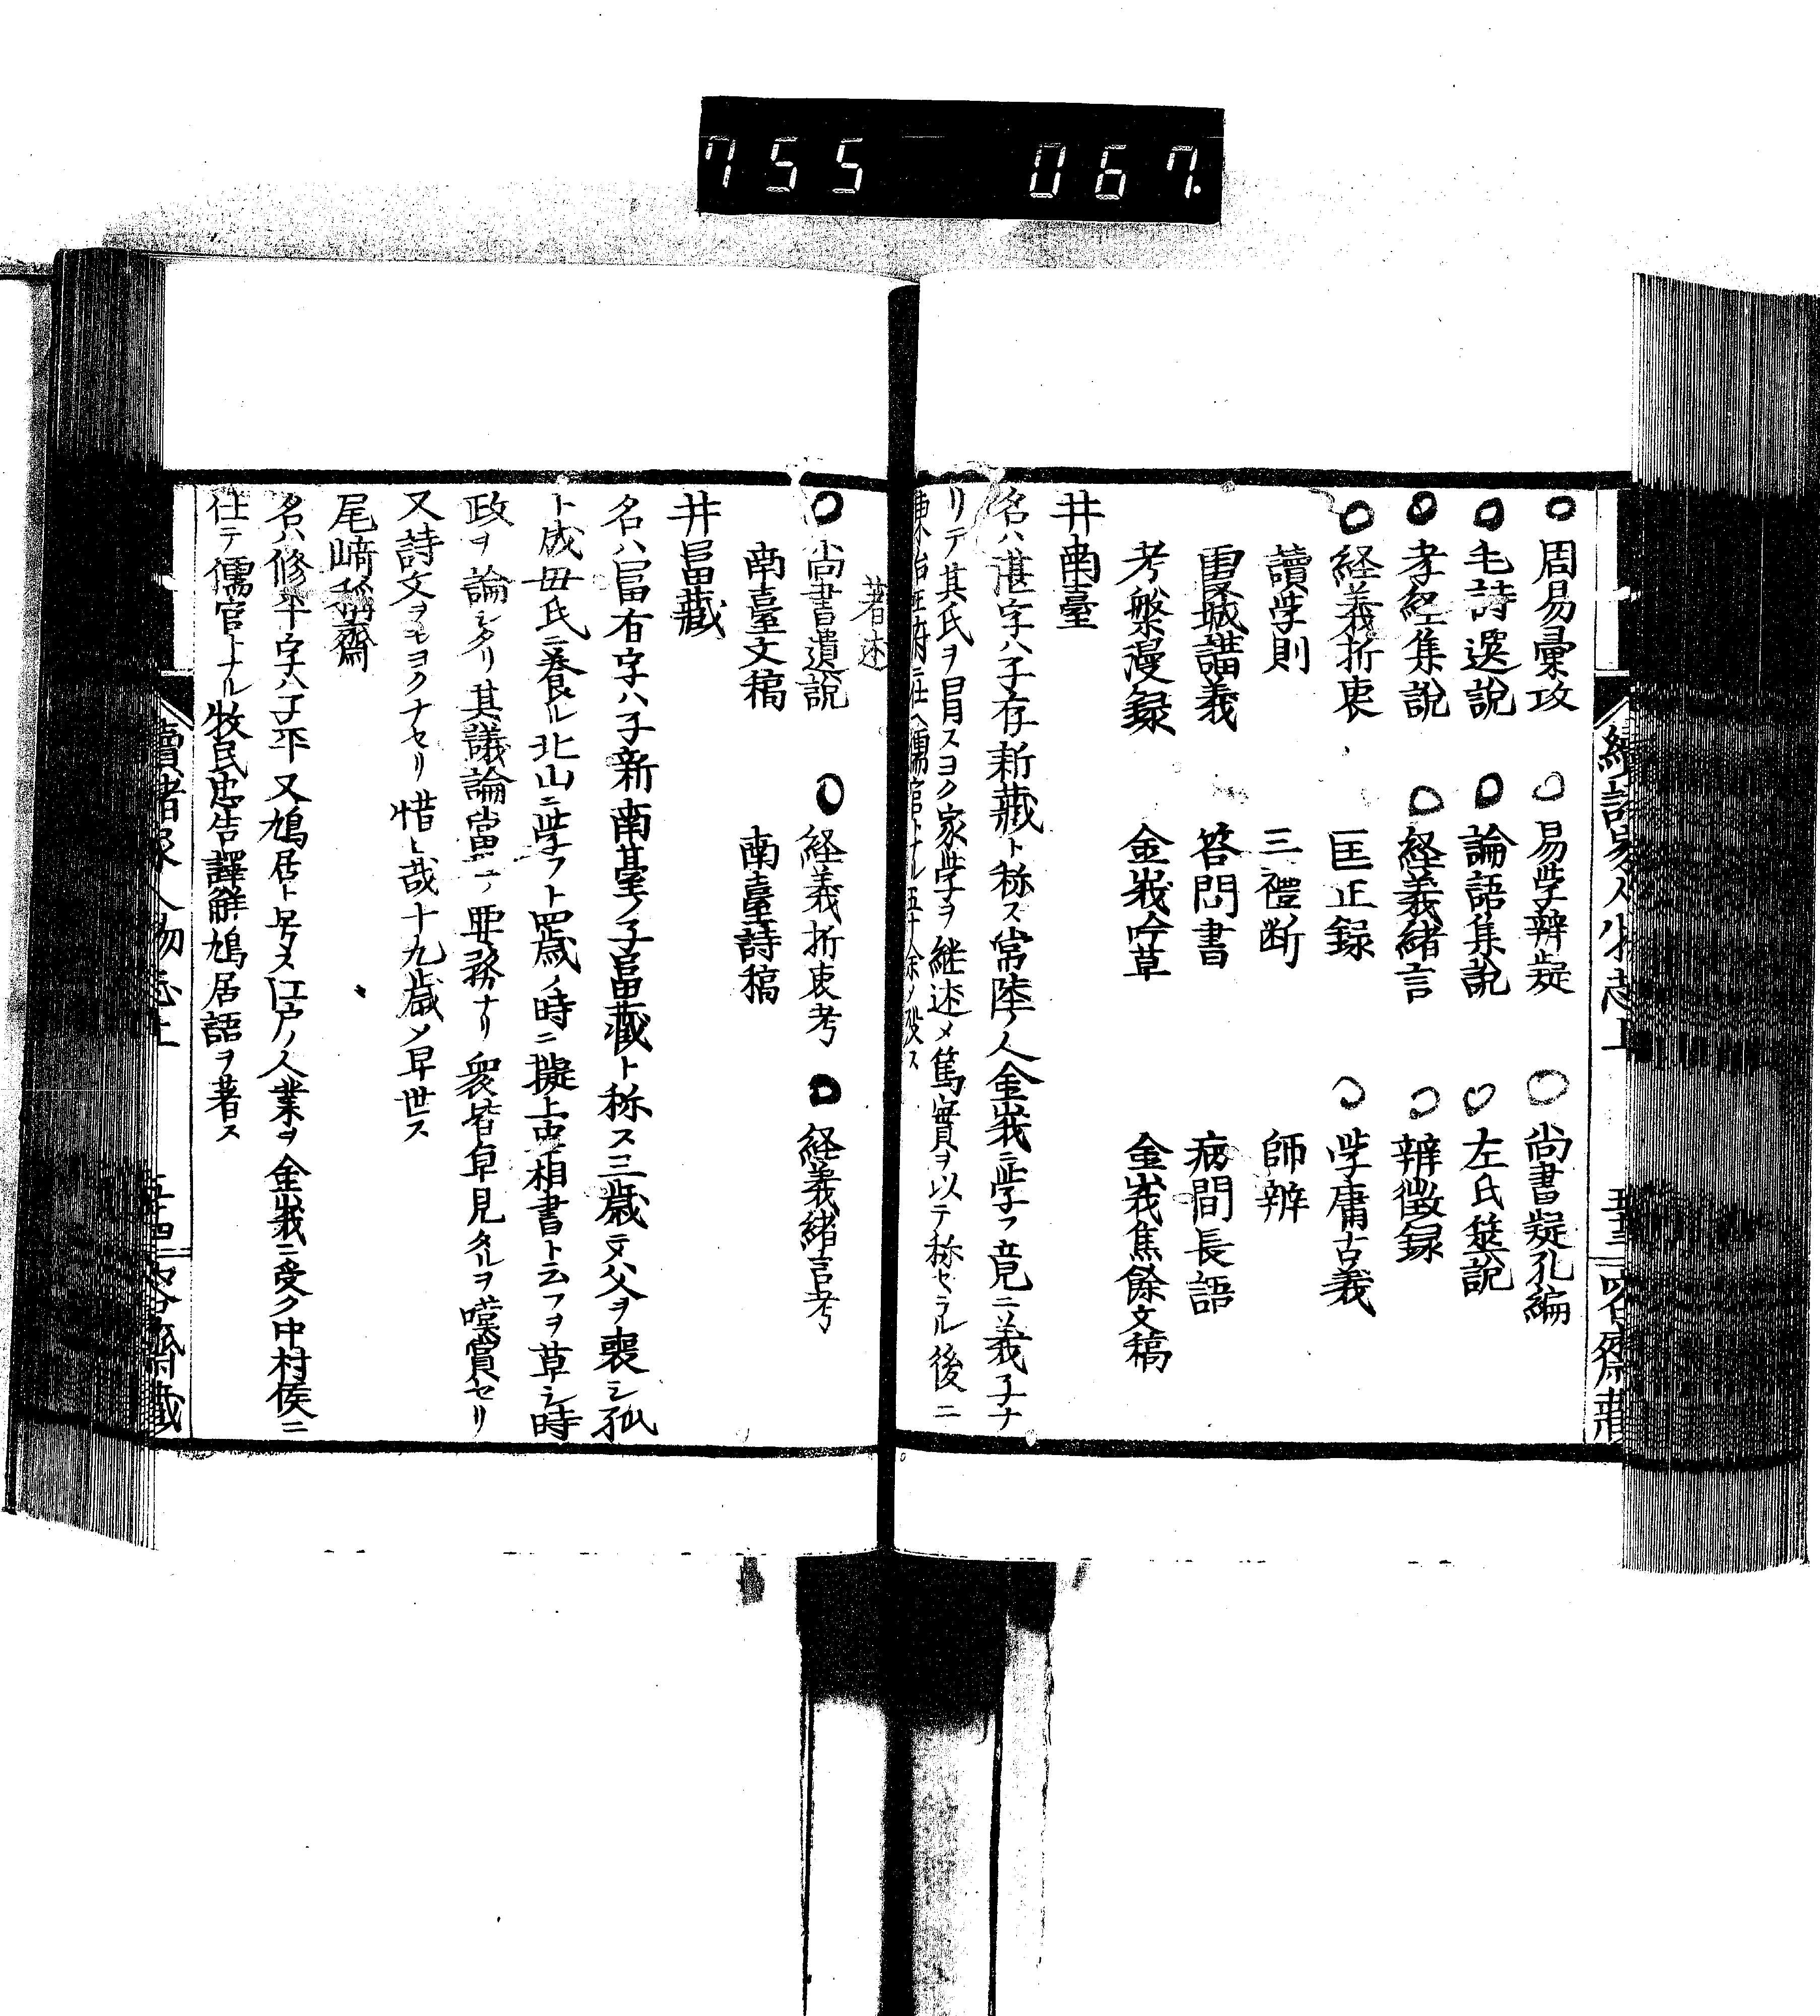 755 067.
○周易彙攷 ○易学辨疑 ○尚書疑孔編
○毛詩選説 ○論語集説 ○左氏筵説
○孝經集說 ○経義緒言 ○辨徴録
○経義折衷 匡正録 ○学庸古義
讀学則 三禮断 師辨
霞城講義 答問書 病間長語
考槃漫録 金峩吟草 金峩焦餘文稿
井南臺
名ハ湛字ハ子存新藏ト称ス常陸ノ人金峩ニ学フ竟ニ義子ナ
リテ其氏ヲ冒スヨク家学ヲ継述メ篤實ヲ以テ称セラル後ニ
儒官トナル五十余ノ歿ス
著述
○尚書遺説 ○経義折衷考 ○経義緒言考
南臺文稿 南臺詩稿
井冨藏
名ハ冨有字ハ子新南臺ノ子冨藏ト称ス三歳テ父ヲ喪シ孤
ト成毋氏ニ養ル北山ニ学フト四歳ノ時ニ擬上忠相書ト云フヲ草シ時
政ヲ論シタリ其議論當テ要務ナリ衆皆卓見タルヲ嘆賞セリ
又詩文ヲモヨクナセリ惜ヒ哉十九歳メ早世ス
尾﨑稱齋
名ハ修平字ハ子平又鳩居ト号ス江戸ノ人業ヲ金峩ニ受ク中村侯ニ
仕テ儒官トナル牧民忠告譯觧鳩居語ヲ著ス